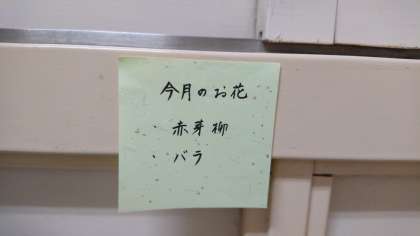 今月のお花
・赤芽柳
・バラ